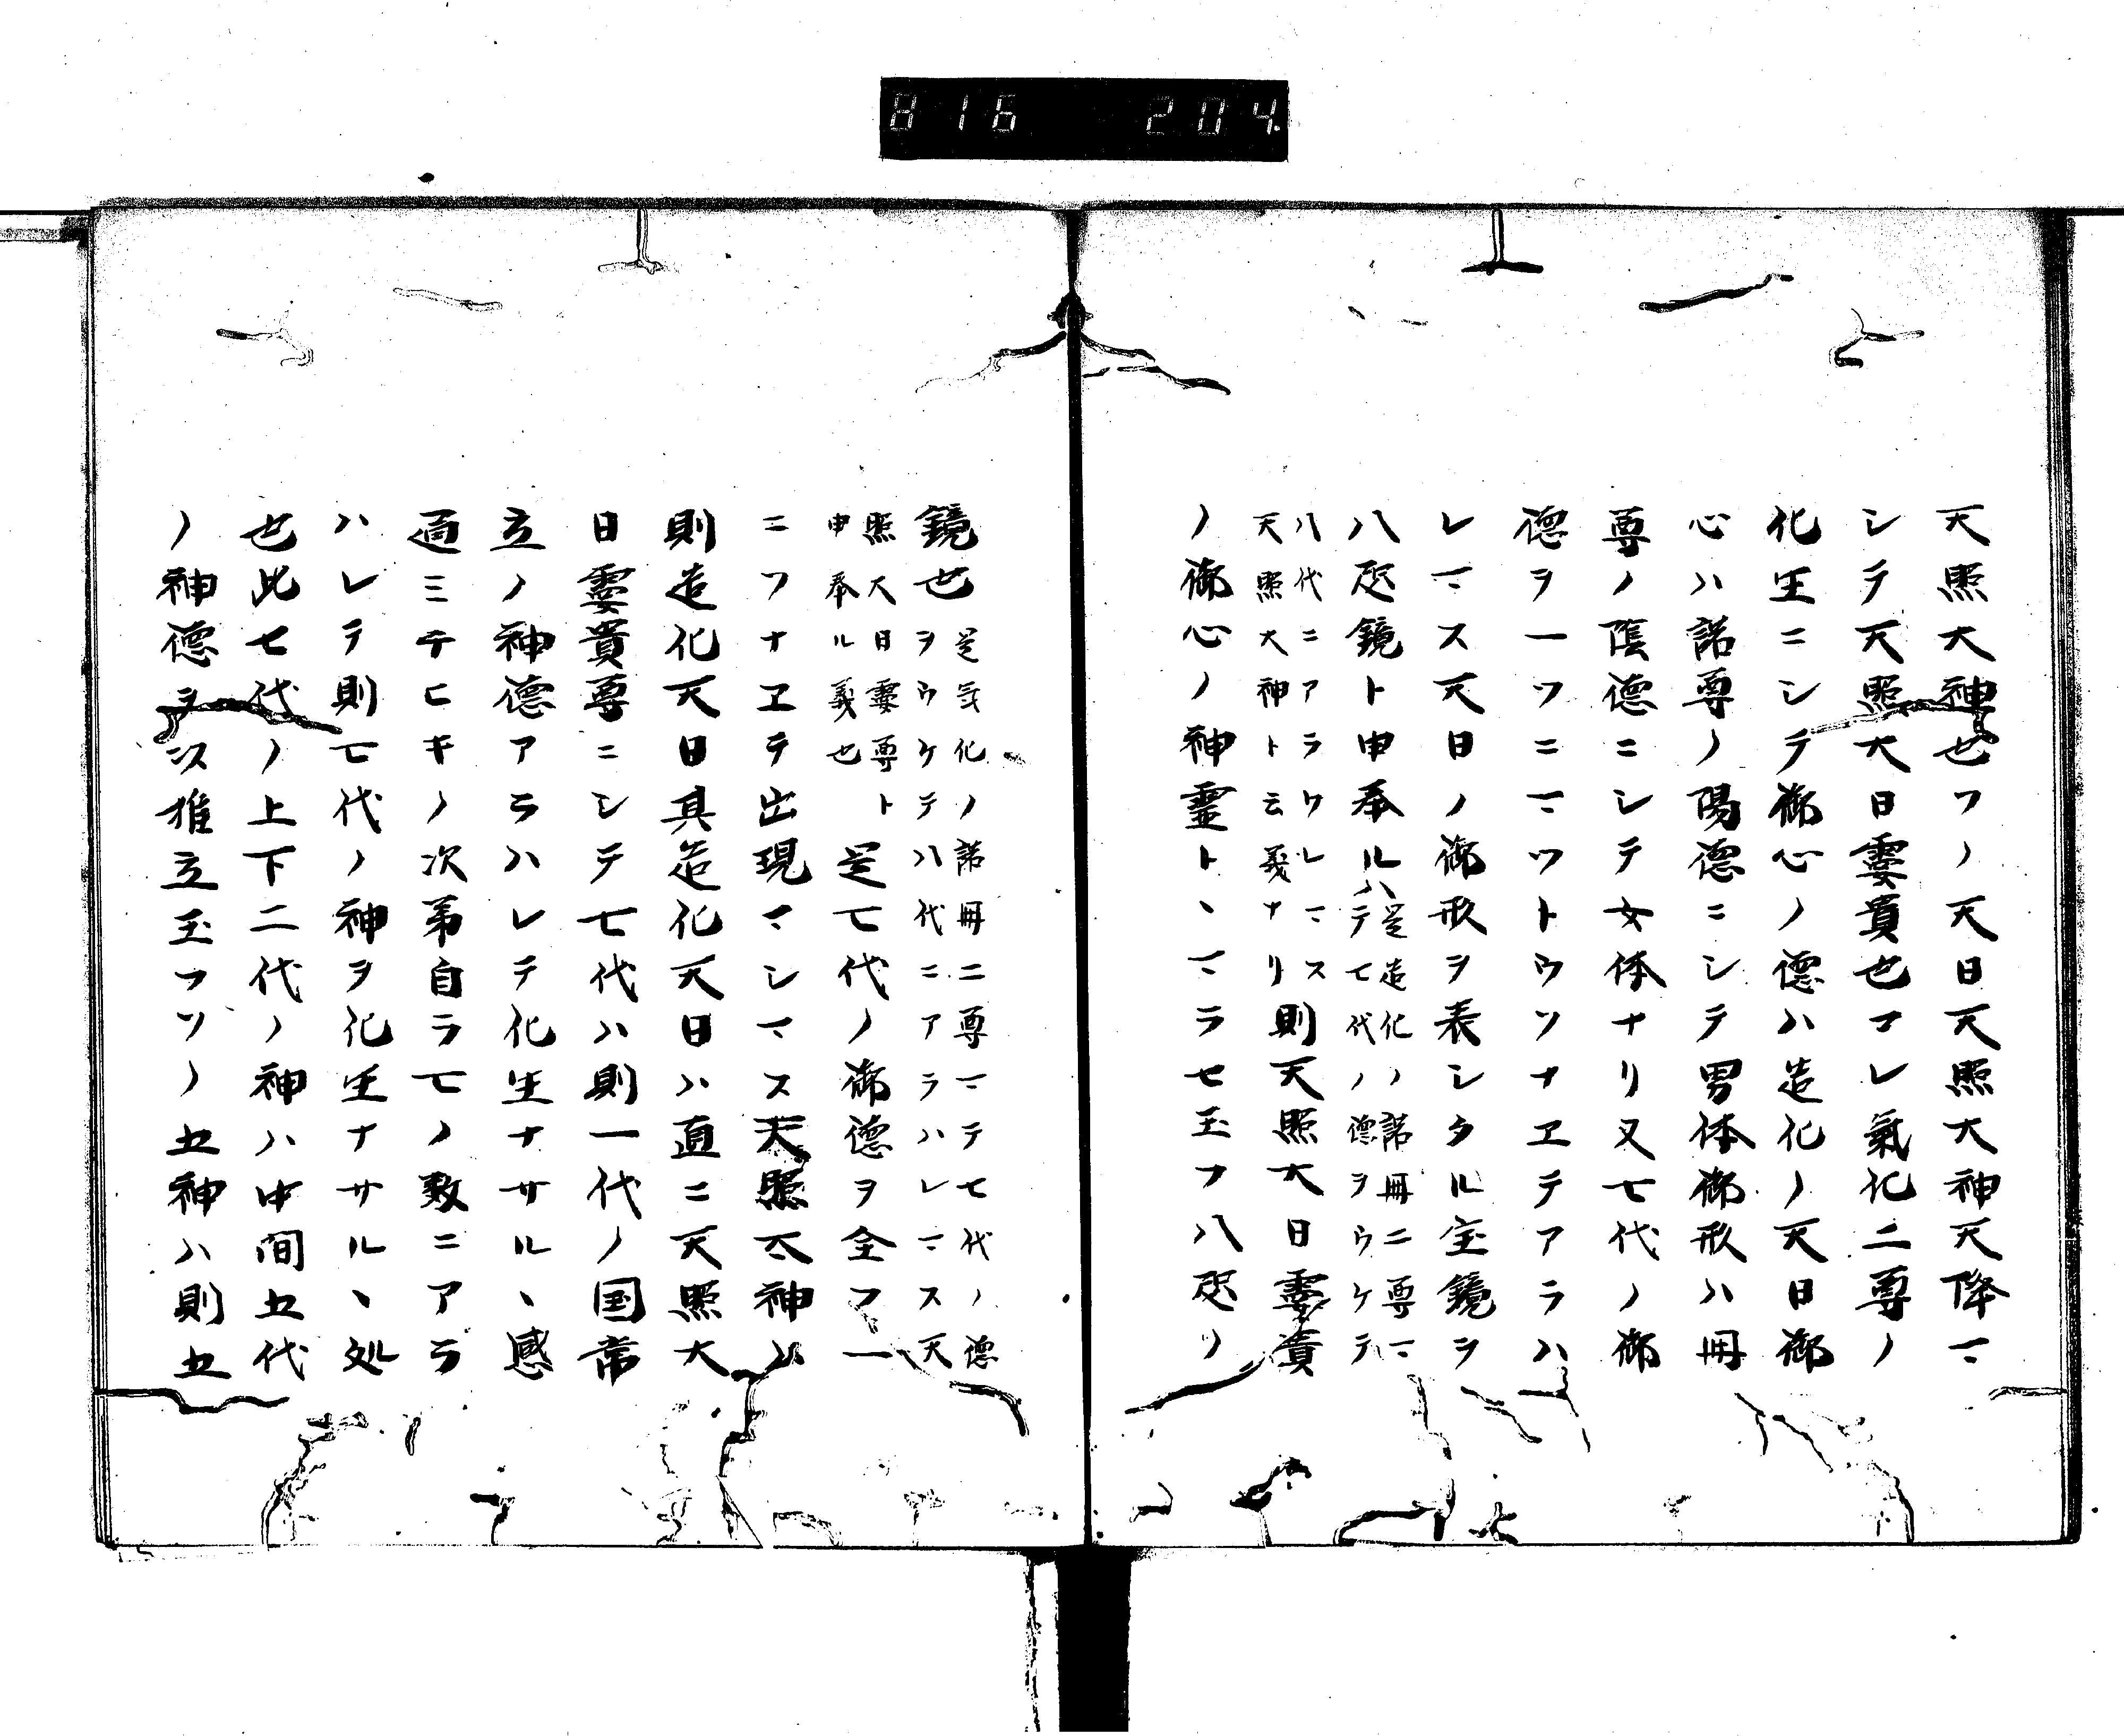 816 204
天照大神也フノ天日天照大神天降マ
シテ天照大日孁貴也マレ氣化二尊ノ
化生ニシテ御心ノ德ハ造化ノ天日御
心ハ諾尊ノ陽德ニシテ男体御形ハ冊
尊ノ陰德ニシテ女体ナリ又七代ノ御
德ヲ一ツニマツトウソナヱテアラハ
レマス天日ノ御形ヲ表シタル宝鏡ヲ
八咫鏡ト申奉ル
是造化ノ諾冊二尊マ
テ七代ノ德ヲウケテ
八代ニアラワレマス
天照大神ト云義ナリ
則天照大日孁貴
ノ御心ノ神霊トヽマラセ玉フ八咫ノ
鏡也
是気化ノ諾冊二尊マテ七代ノ德
ヲウケテ八代ニアラハレマス天
照大日孁尊ト
申奉ル義也
是七代ノ御德ヲ全フ一
ニフナヱテ出現マシマス天照大神ハ
則造化天日其造化天日ハ直ニ天照大
日孁貴尊ニシテ七代ハ則一代ノ国常
立ノ神德アラハレテ化生ナサルヽ感
通ミチヒキノ次第自ラ七ノ数ニアラ
ハレテ則七代ノ神ヲ化生ナサルヽ処
也此七代ノ上下二代ノ神ハ中間五代
ノ神德ヲ以推立玉フソノ五神ハ則五